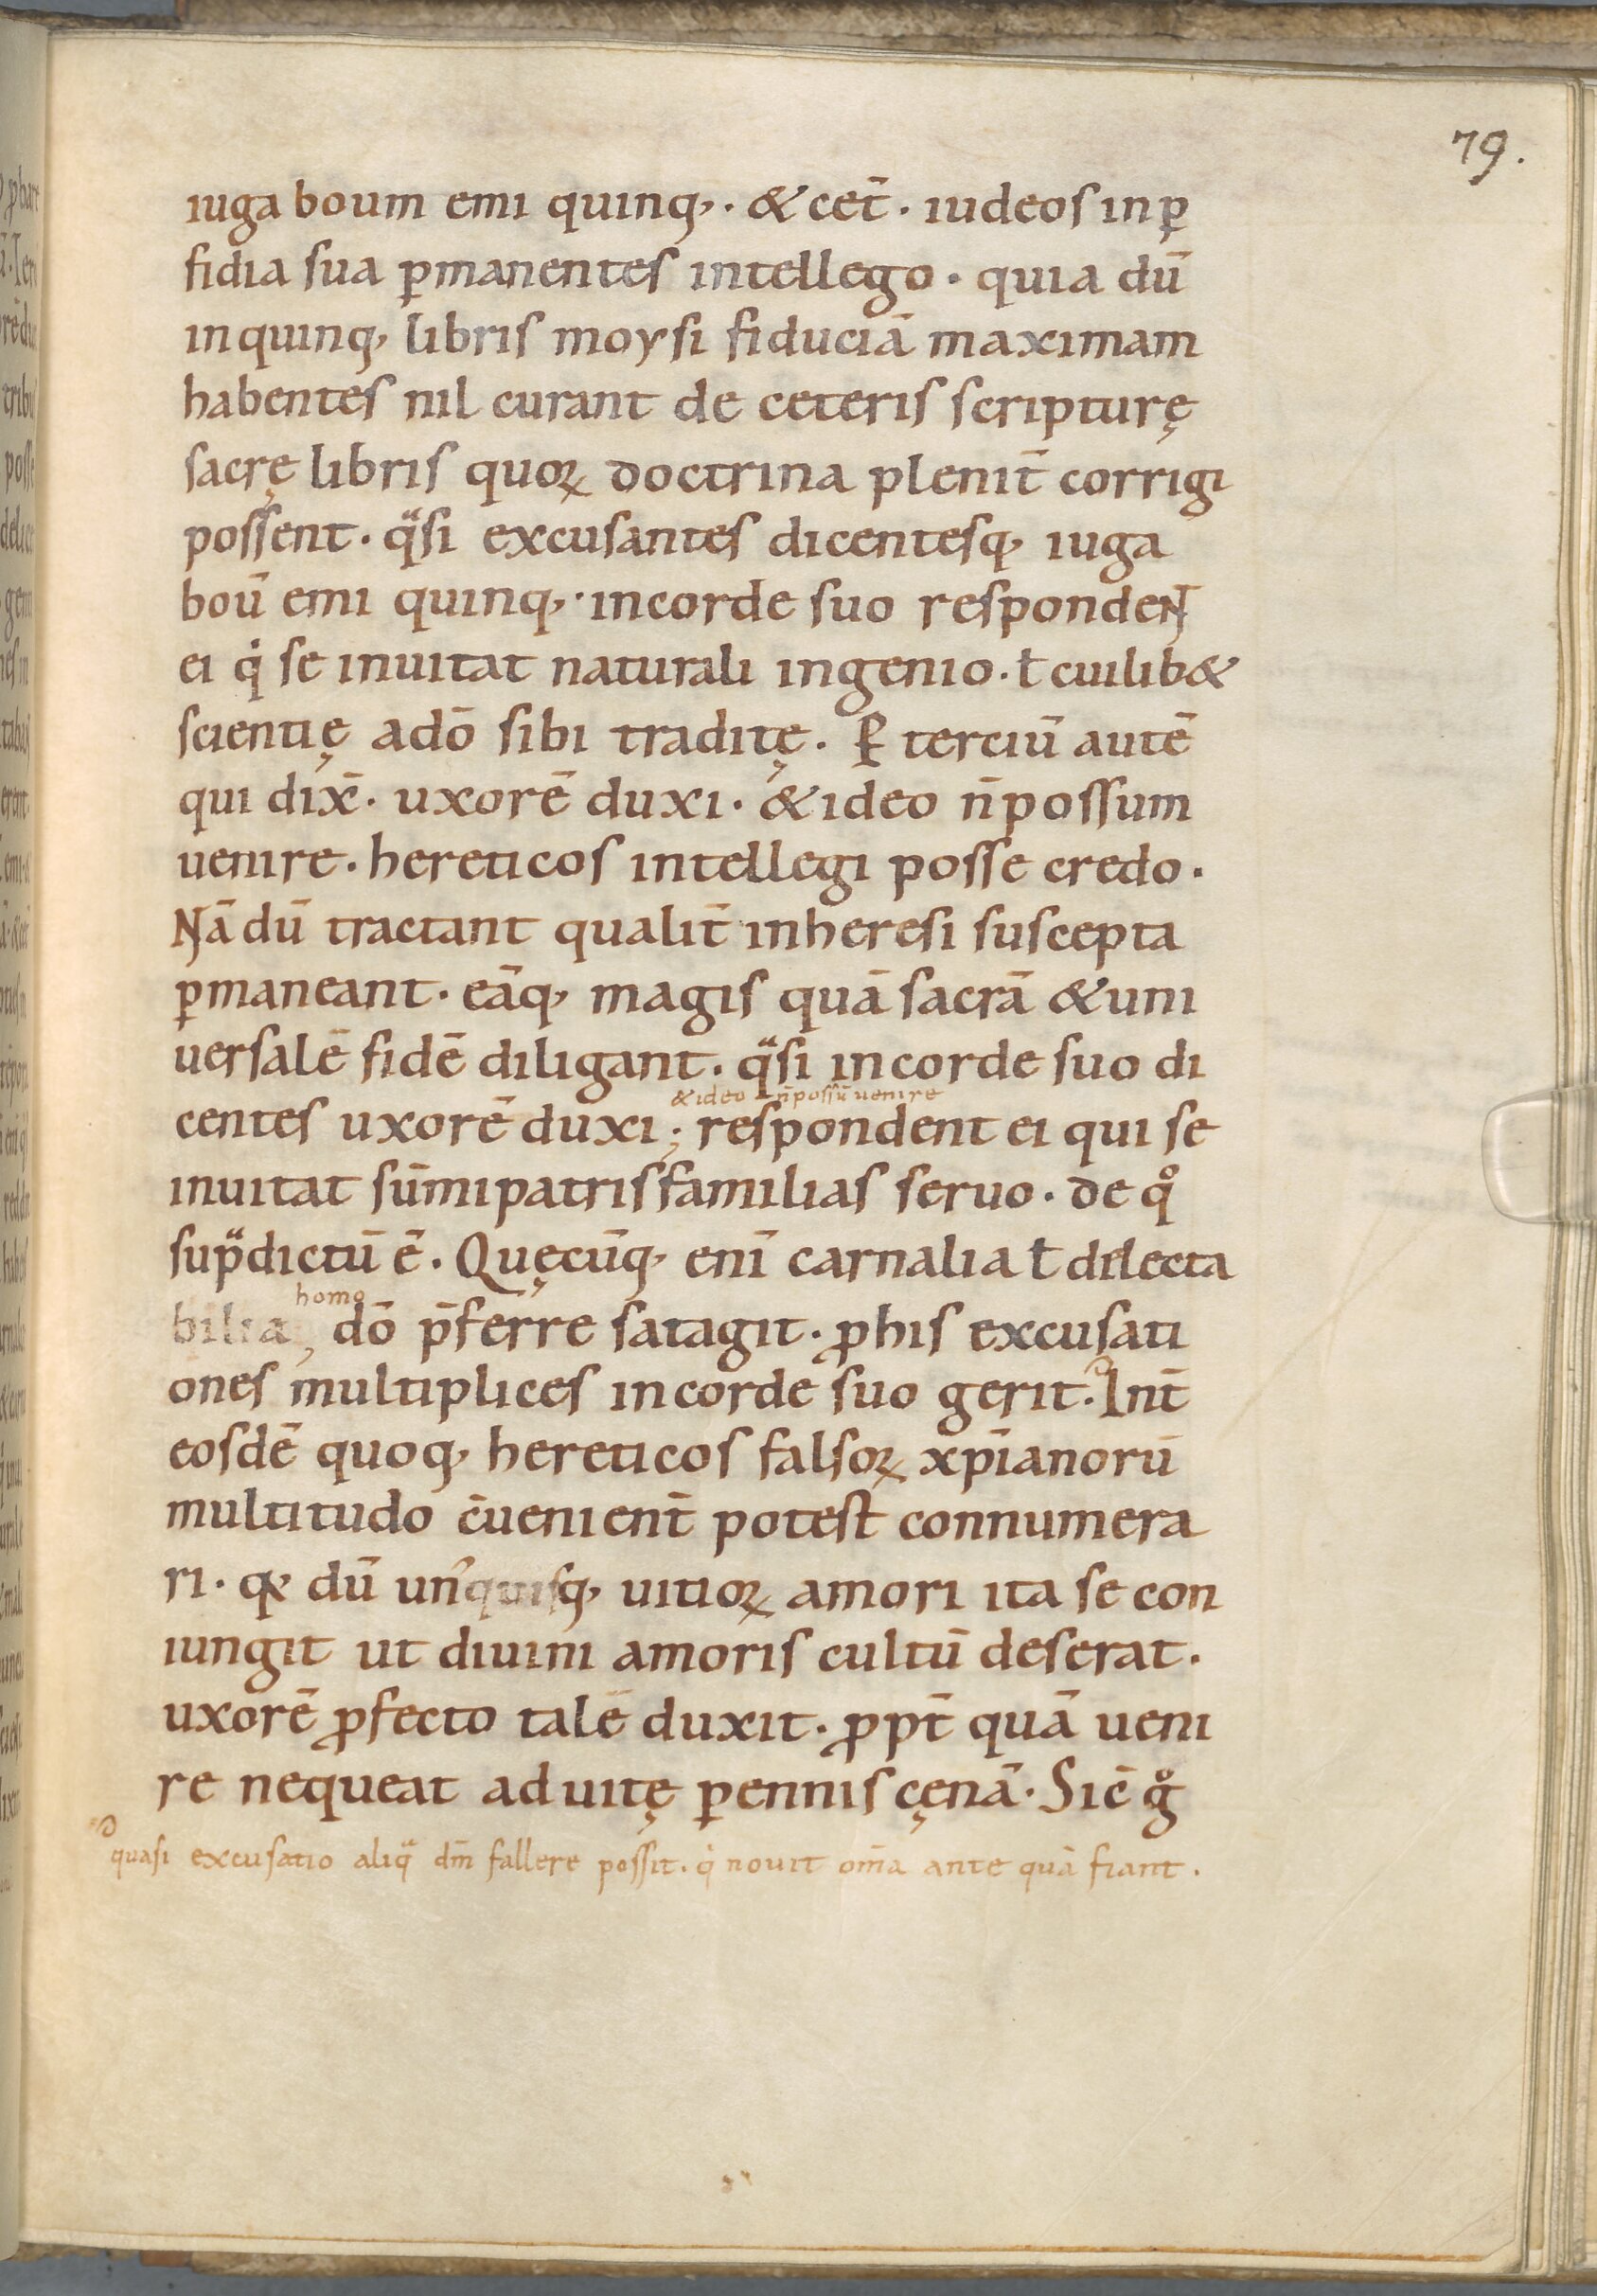 79.
iuga boum emi quinq;. & cet̄. iudeos in ꝑ
fidia sua ꝑmanentes intellego. quia dū
in quinq; libris moysi fiduciā maximam
habentes nil curant de ceteris scripturę
sacrę libris quoꝝ doctrina plenit̄ corrigi
possent. qͣsi excusantes dicentesq; iuga
boū emi quinq;. in corde suo respondeNT
ei qͥ se inuitat naturali ingenio. ł cuilib&
scientię a dō sibi traditę. Ꝑ terciū autē
qui dix̄. uxorē duxi. & ideo n̄ possum
uenire. hereticos intellegi posse credo.
Nā dū tractant qualit̄ in heresi suscepta
ꝑmaneant. eāq; magis quā sacrā & uni
uersalē fidē diligant. qͣsi in corde suo di
& ideo n̄ possū uenire
centes uxorē duxi; respondent ei qui se
inuitat sūmi patrisfamilias seruo. de qͦ
sup̄dictū ē. Quęcūq; enī carnalia ł delecta
homo
bilia, dō p̄ferre satagit. ꝓ his excusati
ones multiplices in corde suo gerit. Int̄
eosdē quoq; hereticos falsoꝝ xp̄ianorū
multitudo c̄uenient̄ potest connumera
ri. qꝫ dū un'quisq; uitioꝝ amori ita se con
iungit ut diuini amoris cultū deserat.
uxorē ꝓfecto talē duxit. ꝓpt̄ quā ueni
re nequeat ad uitę ꝑennis cęnā. Sic̄ gͦ
quasi excusatio aliqͣ dm̄ fallere possit. qͥ nouit om̄a ante quā fiant.